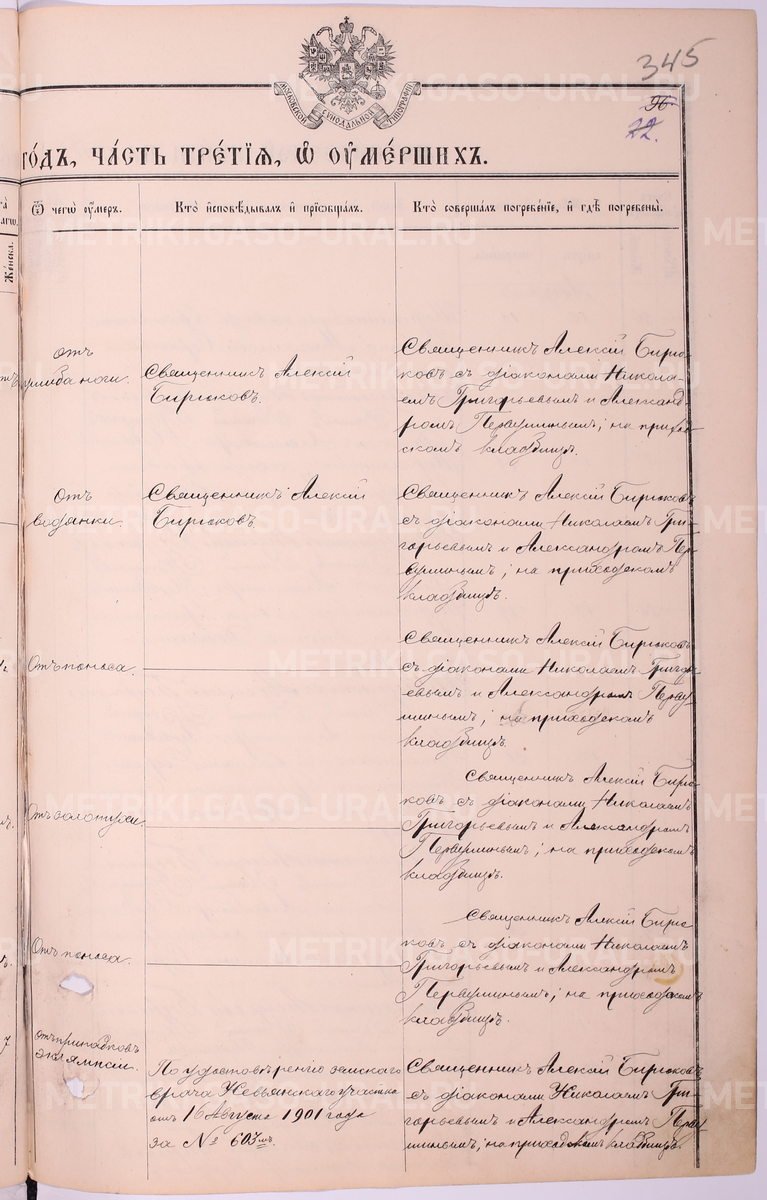 345
96
22.
МОСКОВСКОЙ СѴНОДАЛЬНОЙ ТИПОГРАФІИ
го́дъ, ча́сть тре́тїѧ, ѡ҆ ᲂу҆ме́ршихъ.
Ѿ чегѡ̀ ᲂу҆́меръ.
Кто̀ и҆сповѣ́дывалъ и҆ прїѡбща́лъ.
Кто̀ соверша́лъ погребе́нїе, и҆ гдѣ̀ погребены̀.
Же́нска.
отъ
ушиба ноги.
Священникъ Алексій
Бирюковъ.
Священникъ Алексій Бирю-
ковъ съ діаконами Никола-
емъ Григорьевымъ и Александ-
ромъ Первушинымъ; на приход-
скомъ кладбищѣ.
отъ
водянки.
Священникъ Алексій
Бирюковъ.
Священникъ Алексій Бирюковъ
съ діаконами Николаемъ Гри-
горьевымъ и Александромъ Пер-
вушинымъ; на приходскомъ
кладбищѣ.
Отъ поноса.
Священникъ Алексій Бирюковъ
съ діаконами Николаемъ Григорь-
евымъ и Александромъ Перву-
шинымъ; на приходскомъ
кладбищѣ.
Отъ золотухи.
Священникъ Алексій Бирю-
ковъ съ діаконами Николаемъ
Григорьевымъ и Александромъ
Первушинымъ; на приходскомъ
кладбищѣ.
Отъ поноса.
Священникъ Алексій Бирю-
ковъ съ діаконами Николаемъ
Григорьевымъ и Александромъ
Первушинымъ; на приходскомъ
кладбищѣ.
отъ припадковъ
эклямпсіи.
По удостовѣренію земскаго
врача Невьянскаго участка
отъ 16 Августа 1901 года
за № 603мъ.
Священникъ Алексій Бирюковъ
съ діаконами Николаемъ Гри-
горьевымъ и Александромъ Перву-
шинымъ; на приходскомъ кладбищѣ.
METRIKI.GASO-URAL.RU